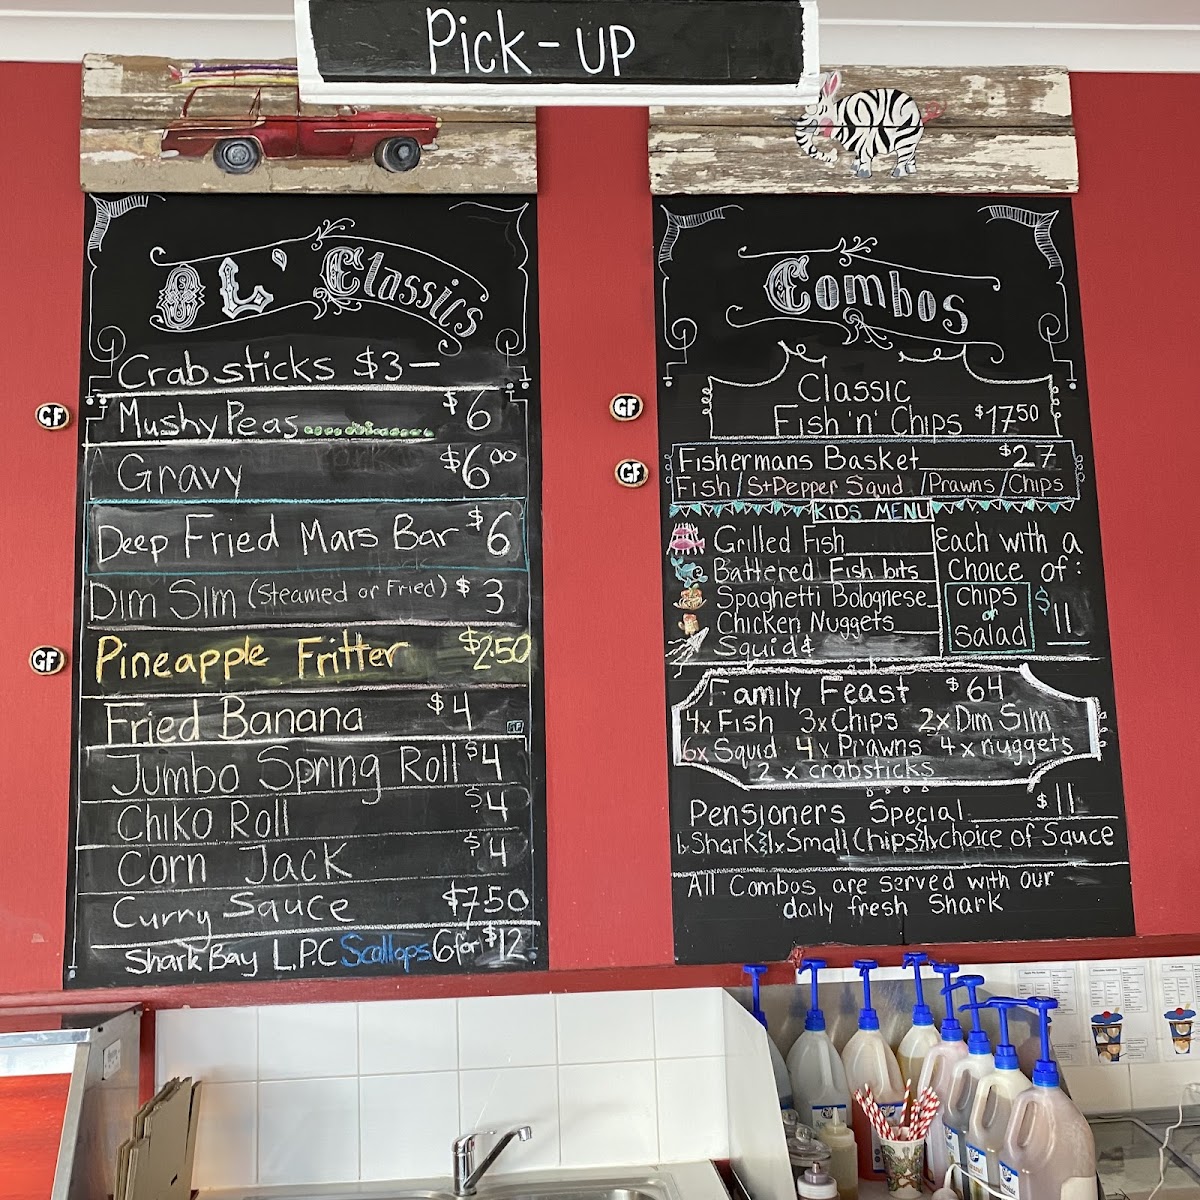 Pick-UP
OL' Classics
Crabsticks $3—
GF
Mushy Peas $6
Gravy $6⁰⁰
Deep Fried Mars Bar $6
Dim Sim (Steamed or Fried) $3
GF
Pineapple Fritter $2.50
Fried Banana $4
GF
Jumbo Spring Roll $4
Chiko Roll $4
Corn Jack $4
Curry Sauce $7.50
Shark Bay L.P.C Scallops 6 for $12
Combos
GF
Classic
Fish 'n' Chips $17⁵⁰
GF
Fishermans Basket $27
Fish/S+Pepper Squid /Prawns/Chips
KIDS MENU
Grilled Fish
Battered Fish bits
Spaghetti Bolognese
Chicken Nuggets
Squid
Each with a
choice of:
Chips
or
Salad
$11
Family Feast $64
4x Fish 3x Chips 2x Dim Sim
6x Squid 4x Prawns 4x nuggets
2 x crabsticks
Pensioners Special $11
1x Shark 1x Small Chips 1x choice of Sauce
All Combos are served with our
daily fresh Shark